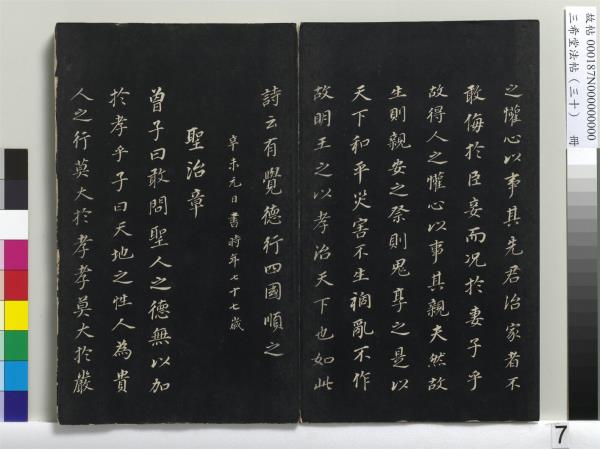 之懽心以事其先君治家者不
敢侮於臣妾而況於妻子乎
故得人之懽心以事其親夫然故
生則親安之祭則鬼享之是以
天下和平災害不生禍亂不作
故明王之以孝治天下也如此
詩云有覺德行四國順之
辛未元日書時年七十七歲
聖治章
曾子曰敢問聖人之德無以加
於孝乎子曰天地之性人為貴
人之行莫大於孝孝莫大於嚴
故帖 000187N000000000
三希堂法帖（三十） 冊
7